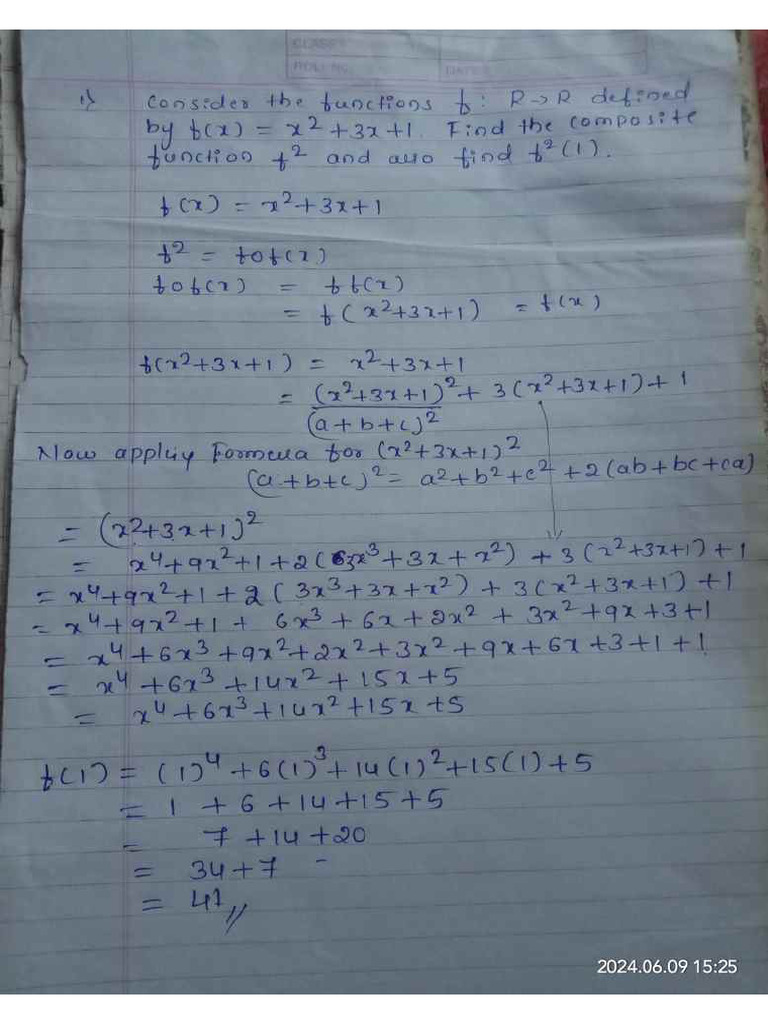 CLASS
ROLL NO.
DATE
1) Consider the functions f : R→R defined
by f(x) = x²+3x+1. Find the composite
function f² and also find f²(1).
f(x) = x²+3x+1
f² = fof(x)
fof(x) = ff(x)
= f(x²+3x+1) = f(x)
f(x²+3x+1) = x²+3x+1
= (x²+3x+1)²+ 3(x²+3x+1)+1
(a+b+c)²
Now appliy Formula for (x²+3x+1)²
(a+b+c)²= a²+b²+c²+2(ab+bc+ca)
= (x²+3x+1)²
= x⁴+9x²+1+2(3x³+3x+x²) + 3(x²+3x+1)+1
= x⁴+9x²+1+2(3x³+3x+x²) + 3(x²+3x+1)+1
= x⁴+9x²+1+ 6x³+6x+2x² + 3x²+9x+3+1
= x⁴+6x³+9x²+2x²+3x²+9x+6x+3+1+1
= x⁴+6x³+14x²+15x+5
= x⁴+6x³+14x²+15x+5
f(1) = (1)⁴+6(1)³+14(1)²+15(1)+5
= 1 + 6+14+15+5
= 7+14+20
= 34+7
= 41//
2024.06.09 15:25